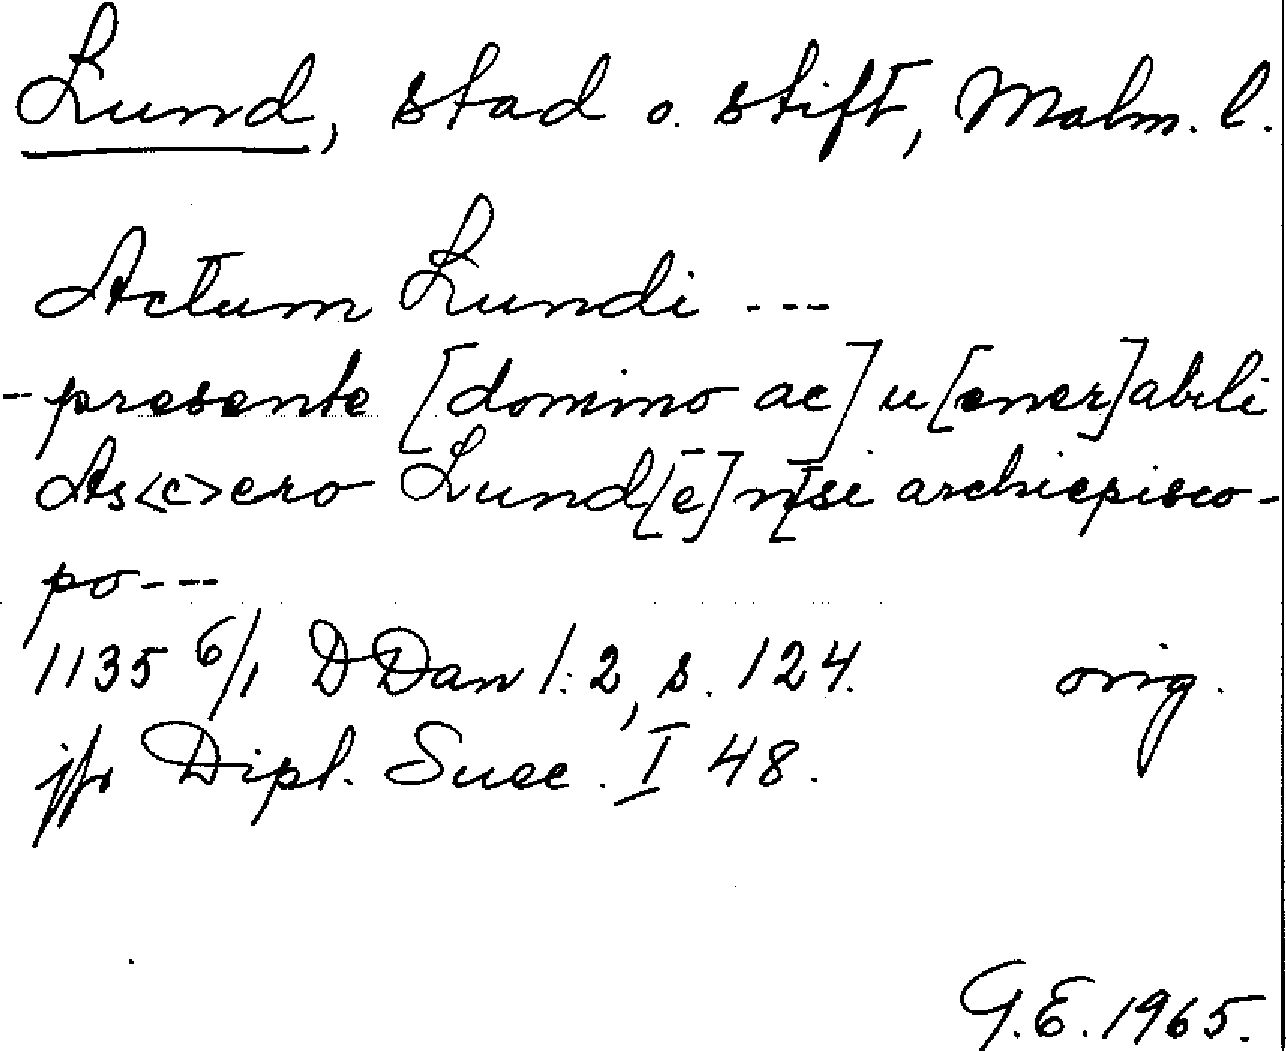 Lund, stad o. stift, Malm. l.
Actum Lundi ---
- presente [domino ac] u[ener]abili
As<c>ero Lund[e]n[si archiepisco-
po ---
1135 6/1 DDan 1:2, s. 124. orig.
jfr Dipl. Suec. I 48.
G.E. 1965.